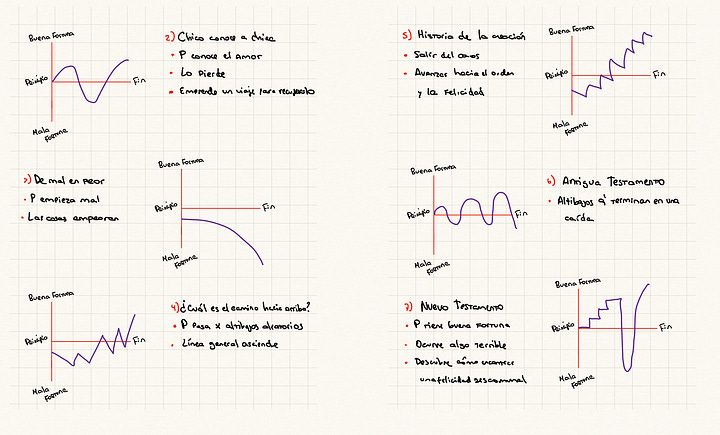 Buena Fortuna
Principio
Fin
Mala
Fortuna
2) Chico conoce a chica
• P conoce el amor
• Lo pierde
• Emprende un viaje para recuperarlo
3) De mal en peor
• P empieza mal
• Las cosas empeoran
Buena Fortuna
Principio
Fin
Mala
Fortuna
Buena Fortuna
Principio
Fin
Mala
Fortuna
4) ¿Cuál es el camino hacia arriba?
• P pasa x altibajos aleatorios
• Línea general asciende
5) Historia de la creación
• Salir del caos
• Avanzar hacia el orden
y la felicidad
Buena Fortuna
Principio
Fin
Mala
Fortuna
Buena Fortuna
Principio
Fin
Mala
Fortuna
6) Antiguo Testamento
• Altibajos q' terminan en una
caída
7) Nuevo Testamento
• P tiene buena fortuna
• Ocurre algo terrible
• Descubre cómo alcanzar
una felicidad descomunal
Buena Fortuna
Principio
Fin
Mala
Fortuna